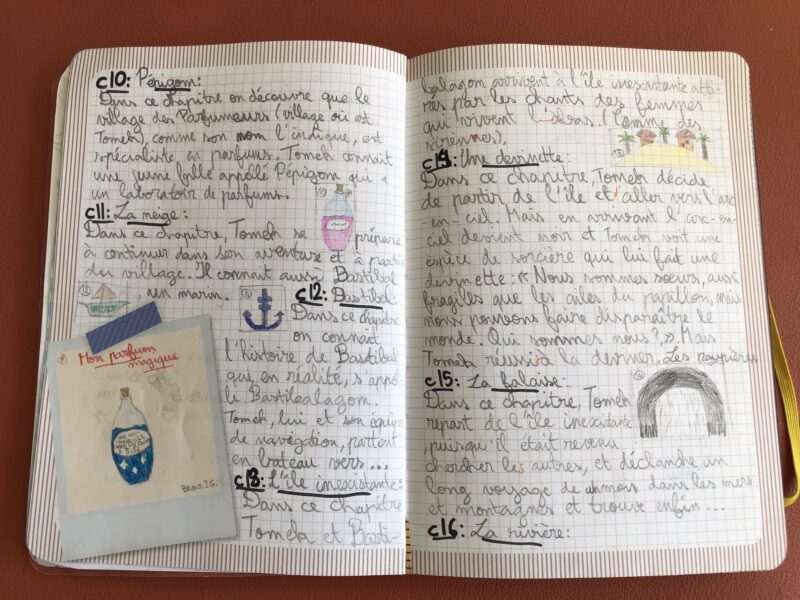 c10: Pépigom:
Dans ce chapitre on découvre que le
village des Parfumeurs (village où est
Tomek), comme son nom l'indique, est
spécialiste en parfums. Tomek connait
une jeune fille appelé Pépigom qui a
un laboratoir de parfums.
c11: La neige:
Dans ce chapitre, Tomek se prépare
à continuer dans son aventure et à partir
du village. Il connait aussi Bastibal
, un marin.
c12: Bastibal:
Dans ce chapitre
on connait
l'histoire de Bastibal
qui, en réalité, s'appel-
le Bastibalagom.
Tomek, lui et son équipe
de navigation, partent
en bateau vers ...
c13: L'île inexistante:
Dans ce chapitre
Tomek et Basti-
Mon parfum
magique
BRUNO I.G.
balagom arrivent à l'île inexistante atti-
rés par les chants des femmes
qui vivent là-bas. (Comme des
sirènes).
c14: Une devinette:
Dans ce chapitre, Tomek décide
de partir de l'île et d'aller vers l'arc
-en-ciel. Mais en arrivant l'arc-en-
ciel devient noir et Tomek voit une
espèce de sorcière qui lui fait une
devinette: « Nous sommes soeurs, aussi
fragiles que les ailes du papillon, mais
nous pouvons faire disparaître le
monde. Qui sommes nous?» Mais
Tomek réussit à le deviner. Les paupières
c15: La falaise:
Dans ce chapitre, Tomek
repart de l'île inexistante
, puisqu'il était revenu
chercher les autres, et déclanche un
long voyage de un mois dans les mers
et montagnes et trouve enfin ...
c16: La rivière: